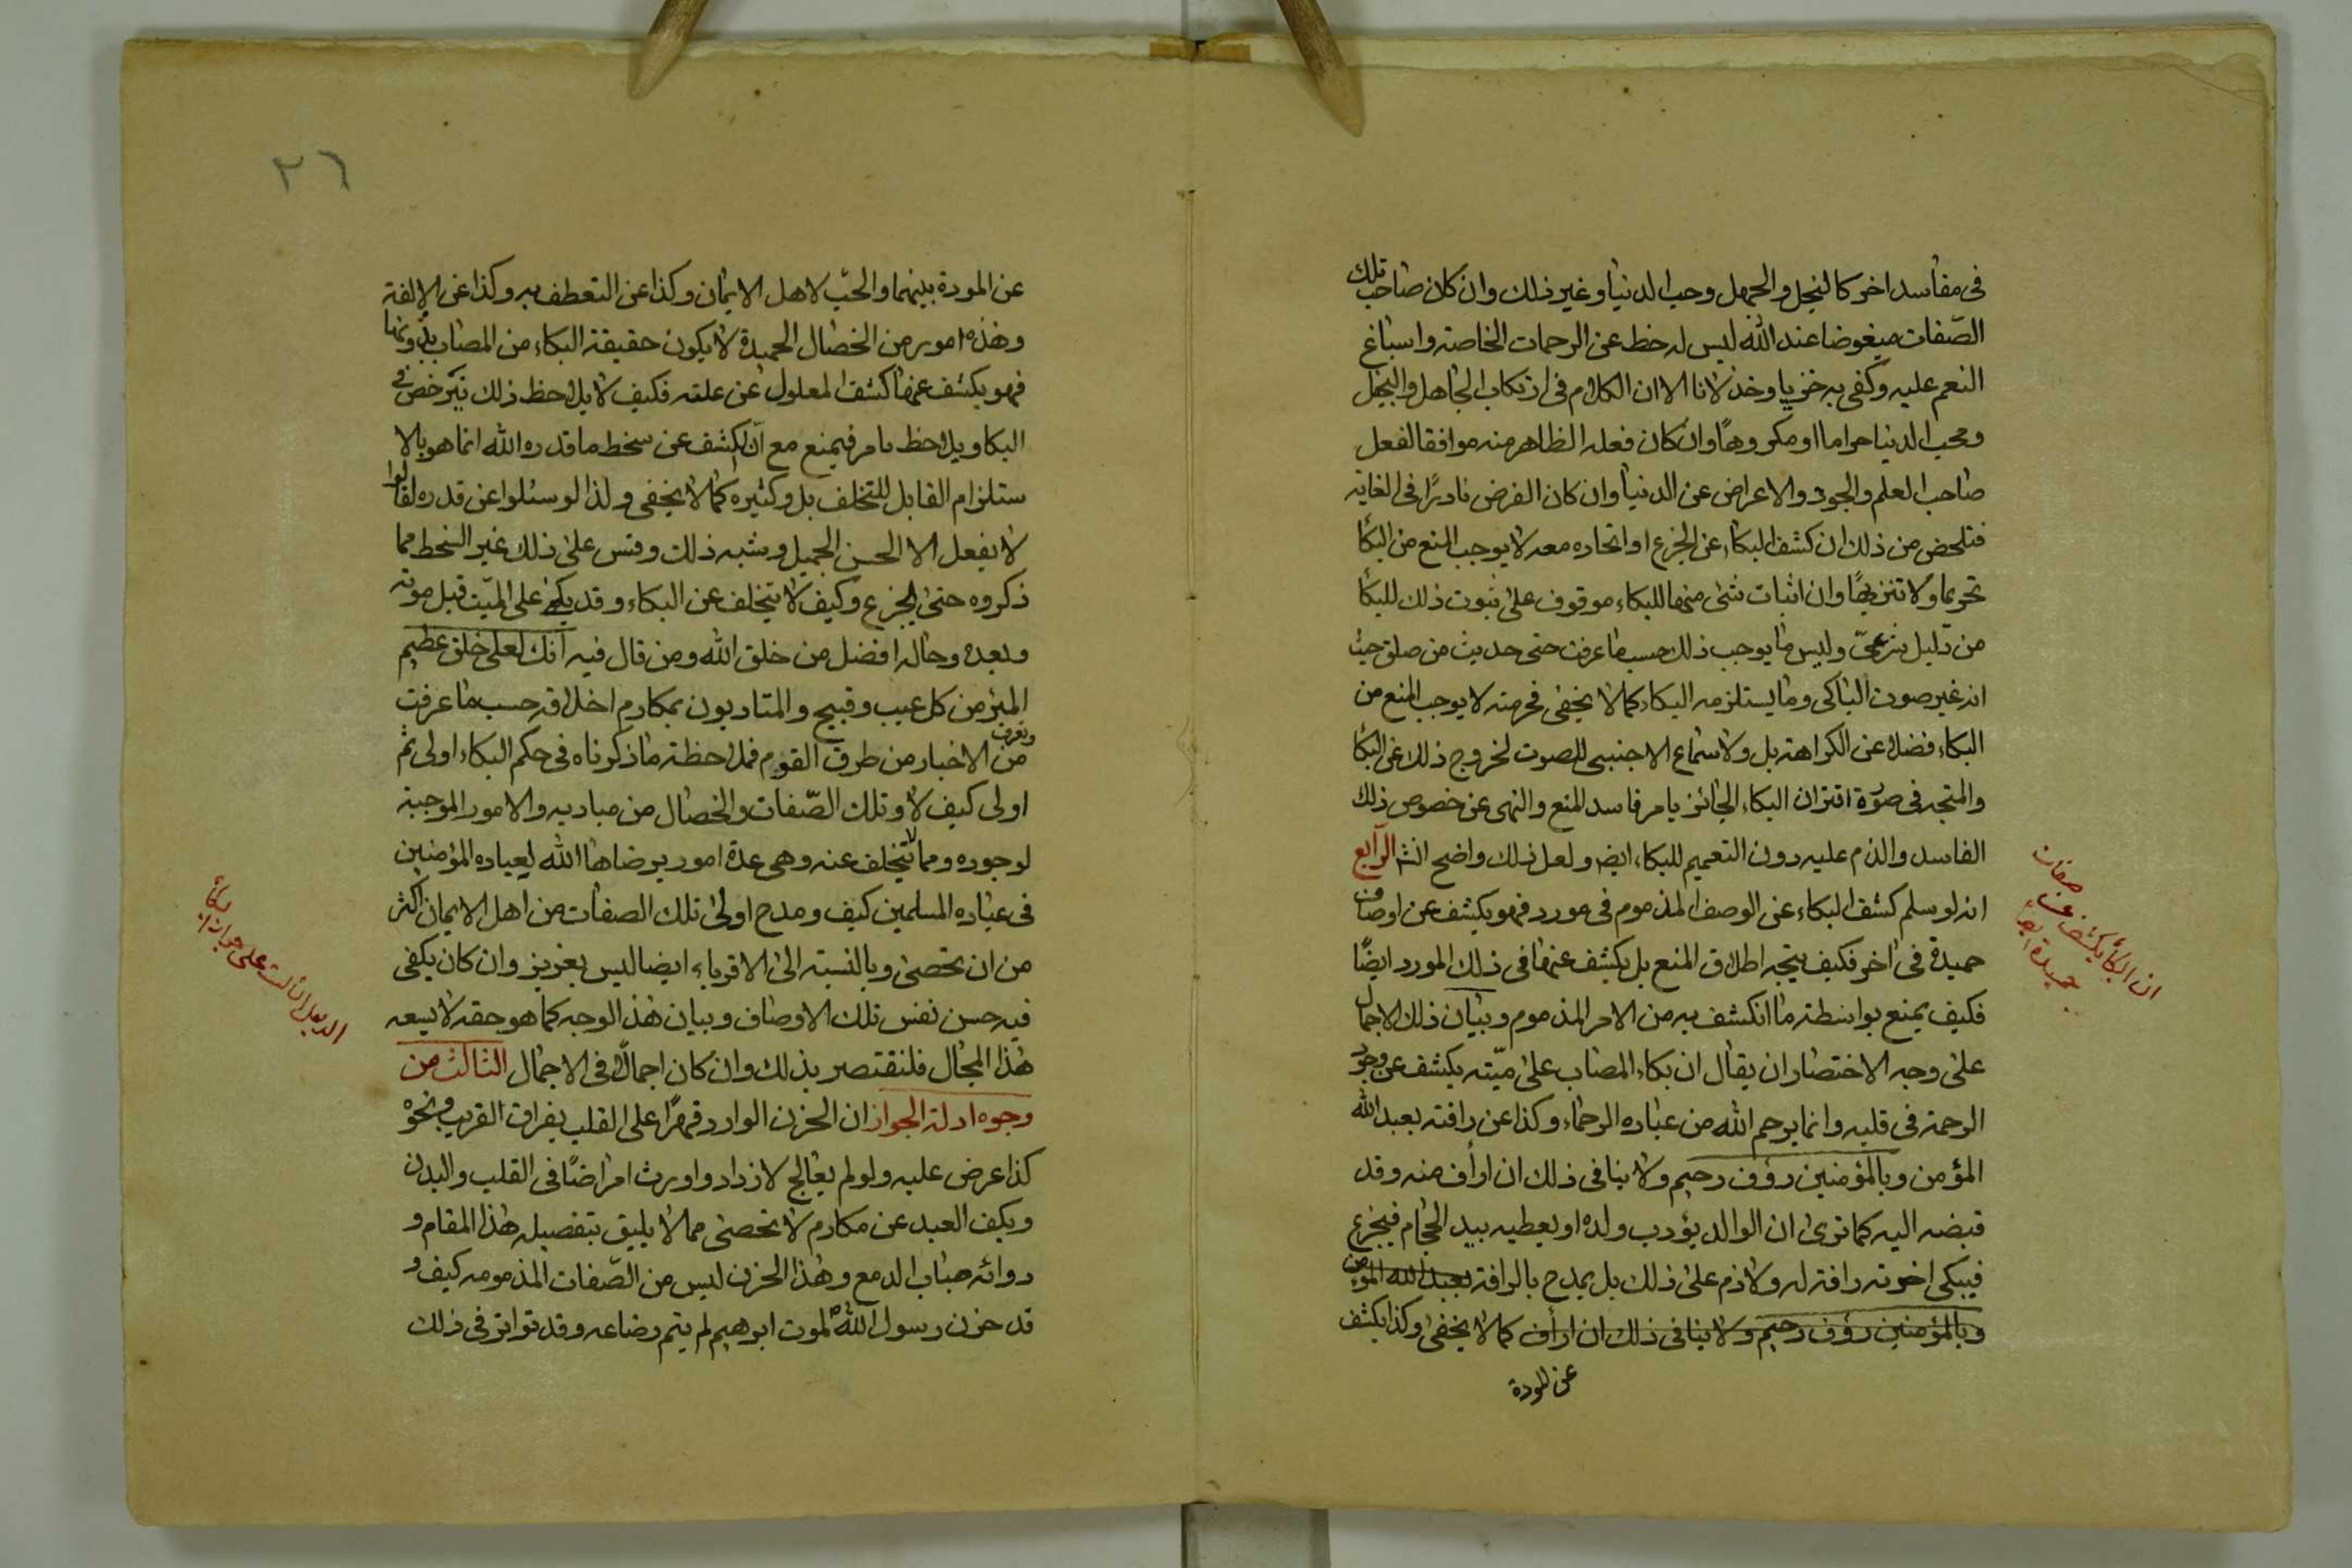 فى مفاسد اخر كالبخل والجهل وحب الدنيا وغير ذلك وان كان صاحب تلك
الصّفات مبغوضا عند الله ليس له حظ عن الرحمات الخاصته واسباغ
النعم عليه وكفى به خزيا وخذلانا الا ان الكلام فى ارتكاب الجاهل والبخيل
ومحب الدنيا حراما او مكروهًا وان كان فعله الظاهر منه موافقا لفعل
صاحب العلم والجود والاعراض عن الدنيا وان كان الفرض نادرًا فى الغاية
فتلخص من ذلك ان كشف البكاء عن الجزع او اتحاده معه لا يوجب المنع من البكأ
تحريما ولا تنزيهًا وان اثبات شئ منها للبكاء موقوف على ثبوت ذلك للبكأ
من دليل شرعىّ وليس ما يوجب ذلك حسب ما عرفت حتى حديث من صلق حيث
انه غير صوت الباكى وما يستلزمه البكاء كما لا يخفى فحرمته لا يوجب المنع من
البكاء فضلا عن الكراهة بل ولا سماع الاجنبى للصوت لخروج ذلك عن البكأ
والمتجه فى صورة اقتران البكاء الجائز بامر فاسد للمنع والنهى عن خصوص ذلك
الفاسد والذم عليه دون التعميم للبكاء ايضا ولعل ذلك واضح انشا الرّابع
انه لو سلم كشف البكاء عن الوصف المذموم فى مورد فهو يكشف عن اوصاف
حميدة فى اخر فكيف يتجه اطلاق المنع بل يكشف عنها فى ذلك المورد ايضًا
فكيف يمنع بواسطة ما انكشف به من الامر المذموم وبيان ذلك الاجمال
على وجه الاختصار ان يقال ان بكاء المصاب على ميّته يكشف عن وجود
الرحمة فى قلبه وانما يرحم الله من عباده الرحماء وكذا عن رافته بعبد الله
المؤمن وبالمؤمنين رؤف رحيم ولا ينافى ذلك ان ارأف منه وقد
قبضه اليه كما ترى ان الوالد يؤدب ولده او يعطيه بيد الحجام فيجزع
فيبكى اخوته رافة له ولا ذم على ذلك بل يمدح بالرافة بعبد الله المؤمن
وبالمؤمنين رؤف رحيم ولا ينافى ذلك ان ارأف كما لا يخفى وكذا يكشف
عن المودة
ان البكأ يكشف عن صفات
حميدة ايضاً
٢٦
عن المودة بينهما والحّب لاهل الايمان وكذا عن التعطف به وكذا عن الالفة
وهذه امور من الخصال الحميدة لا يكون حقيقة البكاء من المصاب بدونها
فهو يكشف عنها كشف المعلول عن علته فكيف لا يلاحظ ذلك فيرخص فى
البكا ويلاحظ بامر فيمنع مع ان الكشف عن سخط ما قدره الله انما هو بالا
ستلزام القابل للتخلف بل وكثيره كما لا يخفى ولذا لو سئلوا عن قدره لقالوا
لا يفعل الا الحسن الجميل ويشبه ذلك وقس على ذلك غير السخط مما
ذكروه حتى الجزع وكيف لا يتخلف عن البكاء وقد بكى على الميّت قبل موته
وبعده وحاله افضل من خلق الله ومن قال فيه انك لعلى خلق عظيم
المبرّ من كل عيب وقبيح والمتادبون بمكارم اخلاقه حسب ما عرفت
وتعرف
من الاخبار من طرق القوم فملاحظة ما ذكرناه فى حكم البكاء اولى ثم
اولى كيف لا وتلك الصّفات والخصال من مباديه والامور الموجبة
لوجوده ومما لا يتخلف عنه وهى عدة امور يرضاها الله لعباده المؤمنين
فى عباده المسلمين كيف ومدح اولى تلك الصفات من اهل الايمان اكثر
من ان تحصى وبالنسبة الى الاقرباء ايضا ليس بعزيز وان كان يكفى
فيه حسن نفس تلك الاوصاف وبيان هذ الوجه كما هو حقه لا يسعه
هذا المجال فلنقتصر بذلك وان كان اجمالًا فى الاجمال الثالث من
وجوه ادلة الجواز ان الحزن الوارد قهرًا على القلب بفراق القريب ونحوه
كذا عرض عليه ولو لم يعالج لازداد واورث امراضًا فى القلب والبدن
ويكف العبد عن مكارم لا تحصى مما لا يليق بتفصيله هذا المقام و
دوائه صباب الدمع وهذا الحزن ليس من الصّفات المذمومه كيف و
قد حزن رسول الله لموت ابرهيم لم يتم رضاعه وقد تواتر فى ذلك
الدليل الثالث على جواز البكاأ